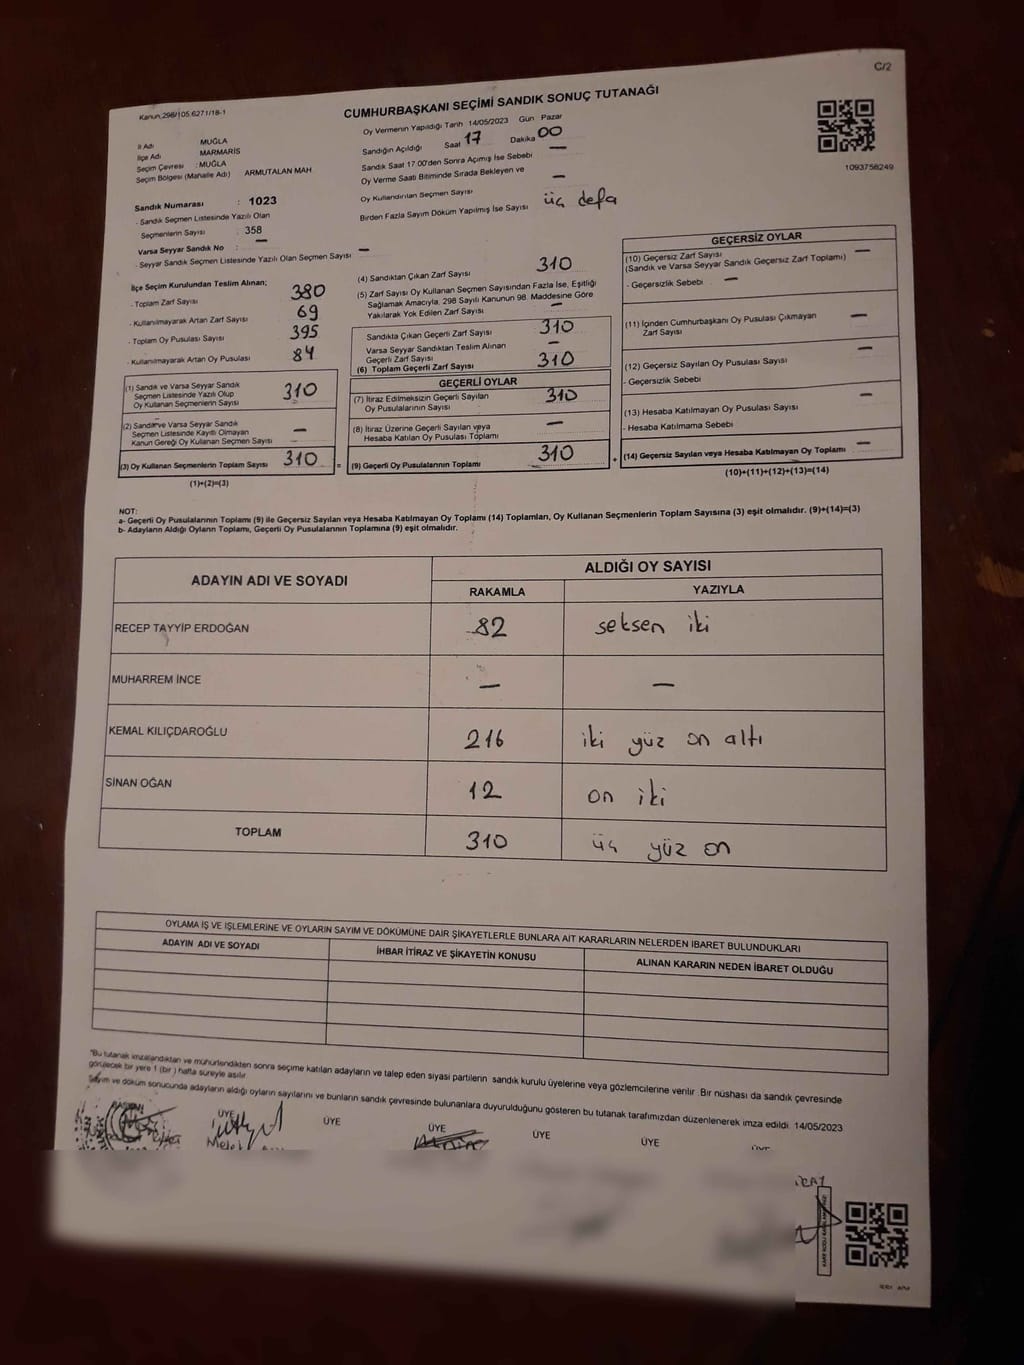 C/2
Kanun:298/105.6271/18-1
CUMHURBAŞKANI SEÇİMİ SANDIK SONUÇ TUTANAĞI
1093758249
İl Adı : MUĞLA
İlçe Adı : MARMARİS
Seçim Çevresi : MUĞLA
Seçim Bölgesi (Mahalle Adı) ARMUTALAN MAH
Sandık Numarası : 1023
- Sandık Seçmen Listesinde Yazılı Olan
Seçmenlerin Sayısı : 358
Varsa Seyyar Sandık No : —
- Seyyar Sandık Seçmen Listesinde Yazılı Olan Seçmen Sayısı —
Oy Vermenin Yapıldığı Tarih 14/05/2023 Gün Pazar
Sandığın Açıldığı Saat 17 Dakika 00
Sandık Saat 17:00'den Sonra Açımış İse Sebebi —
Oy Verme Saati Bitiminde Sırada Bekleyen ve
Oy Kullandırılan Seçmen Sayısı —
Birden Fazla Sayım Döküm Yapılmış İse Sayısı üç defa
İlçe Seçim Kurulundan Teslim Alınan;
- Toplam Zarf Sayısı 380
- Kullanılmayarak Artan Zarf Sayısı 69
- Toplam Oy Pusulası Sayısı 395
- Kullanılmayarak Artan Oy Pusulası 84
(1) Sandık ve Varsa Seyyar Sandık
Seçmen Listesinde Yazılı Olup
Oy Kullanan Seçmenlerin Sayısı 310
(2) Sandık ve Varsa Seyyar Sandık
Seçmen Listesinde Kayıtlı Olmayan
Kanun Gereği Oy Kullanan Seçmen Sayısı —
(3) Oy Kullanan Seçmenlerin Toplam Sayısı 310
(1)+(2)=(3)
(4) Sandıktan Çıkan Zarf Sayısı 310
(5) Zarf Sayısı Oy Kullanan Seçmen Sayısından Fazla İse, Eşitliği
Sağlamak Amacıyla, 298 Sayılı Kanunun 98. Maddesine Göre
Yakılarak Yok Edilen Zarf Sayısı —
Sandıkta Çıkan Geçerli Zarf Sayısı 310
Varsa Seyyar Sandıktan Teslim Alınan
Geçerli Zarf Sayısı —
(6) Toplam Geçerli Zarf Sayısı 310
GEÇERLİ OYLAR
(7) İtiraz Edilmeksizin Geçerli Sayılan
Oy Pusulalarının Sayısı 310
(8) İtiraz Üzerine Geçerli Sayılan veya
Hesaba Katılan Oy Pusulası Toplamı —
= (9) Geçerli Oy Pusulalarının Toplamı 310
GEÇERSİZ OYLAR
(10) Geçersiz Zarf Sayısı —
(Sandık ve Varsa Seyyar Sandık Geçersiz Zarf Toplamı)
- Geçersizlik Sebebi —
(11) İçinden Cumhurbaşkanı Oy Pusulası Çıkmayan
Zarf Sayısı —
(12) Geçersiz Sayılan Oy Pusulası Sayısı —
- Geçersizlik Sebebi
(13) Hesaba Katılmayan Oy Pusulası Sayısı —
- Hesaba Katılmama Sebebi
+ (14) Geçersiz Sayılan veya Hesaba Katılmayan Oy Toplamı —
(10)+(11)+(12)+(13)=(14)
NOT:
a- Geçerli Oy Pusulalarının Toplamı (9) ile Geçersiz Sayılan veya Hesaba Katılmayan Oy Toplamı (14) Toplamları, Oy Kullanan Seçmenlerin Toplam Sayısına (3) eşit olmalıdır. (9)+(14)=(3)
b- Adayların Aldığı Oyların Toplamı, Geçerli Oy Pusulalarının Toplamına (9) eşit olmalıdır.
ADAYIN ADI VE SOYADI ALDIĞI OY SAYISI
RAKAMLA YAZIYLA
RECEP TAYYİP ERDOĞAN 82 seksen iki
MUHARREM İNCE — —
KEMAL KILIÇDAROĞLU 216 iki yüz on altı
SİNAN OĞAN 12 on iki
TOPLAM 310 üç yüz on
OYLAMA İŞ VE İŞLEMLERİNE VE OYLARIN SAYIM VE DÖKÜMÜNE DAİR ŞİKAYETLERLE BUNLARA AİT KARARLARIN NELERDEN İBARET BULUNDUKLARI
ADAYIN ADI VE SOYADI İHBAR İTİRAZ VE ŞİKAYETİN KONUSU ALINAN KARARIN NEDEN İBARET OLDUĞU
*Bu tutanak imzalandıktan ve mühürlendikten sonra seçime katılan adayların ve talep eden siyasi partilerin sandık kurulu üyelerine veya gözlemcilerine verilir. Bir nüshası da sandık çevresinde
görülecek bir yere 1 (bir) hafta süreyle asılır.
Sayım ve döküm sonucunda adayların aldığı oyların sayılarını ve bunların sandık çevresinde bulunanlara duyurulduğunu gösteren bu tutanak tarafımızdan düzenlenerek imza edildi. 14/05/2023
BAŞKAN ÜYE ÜYE ÜYE ÜYE ÜYE ÜYE